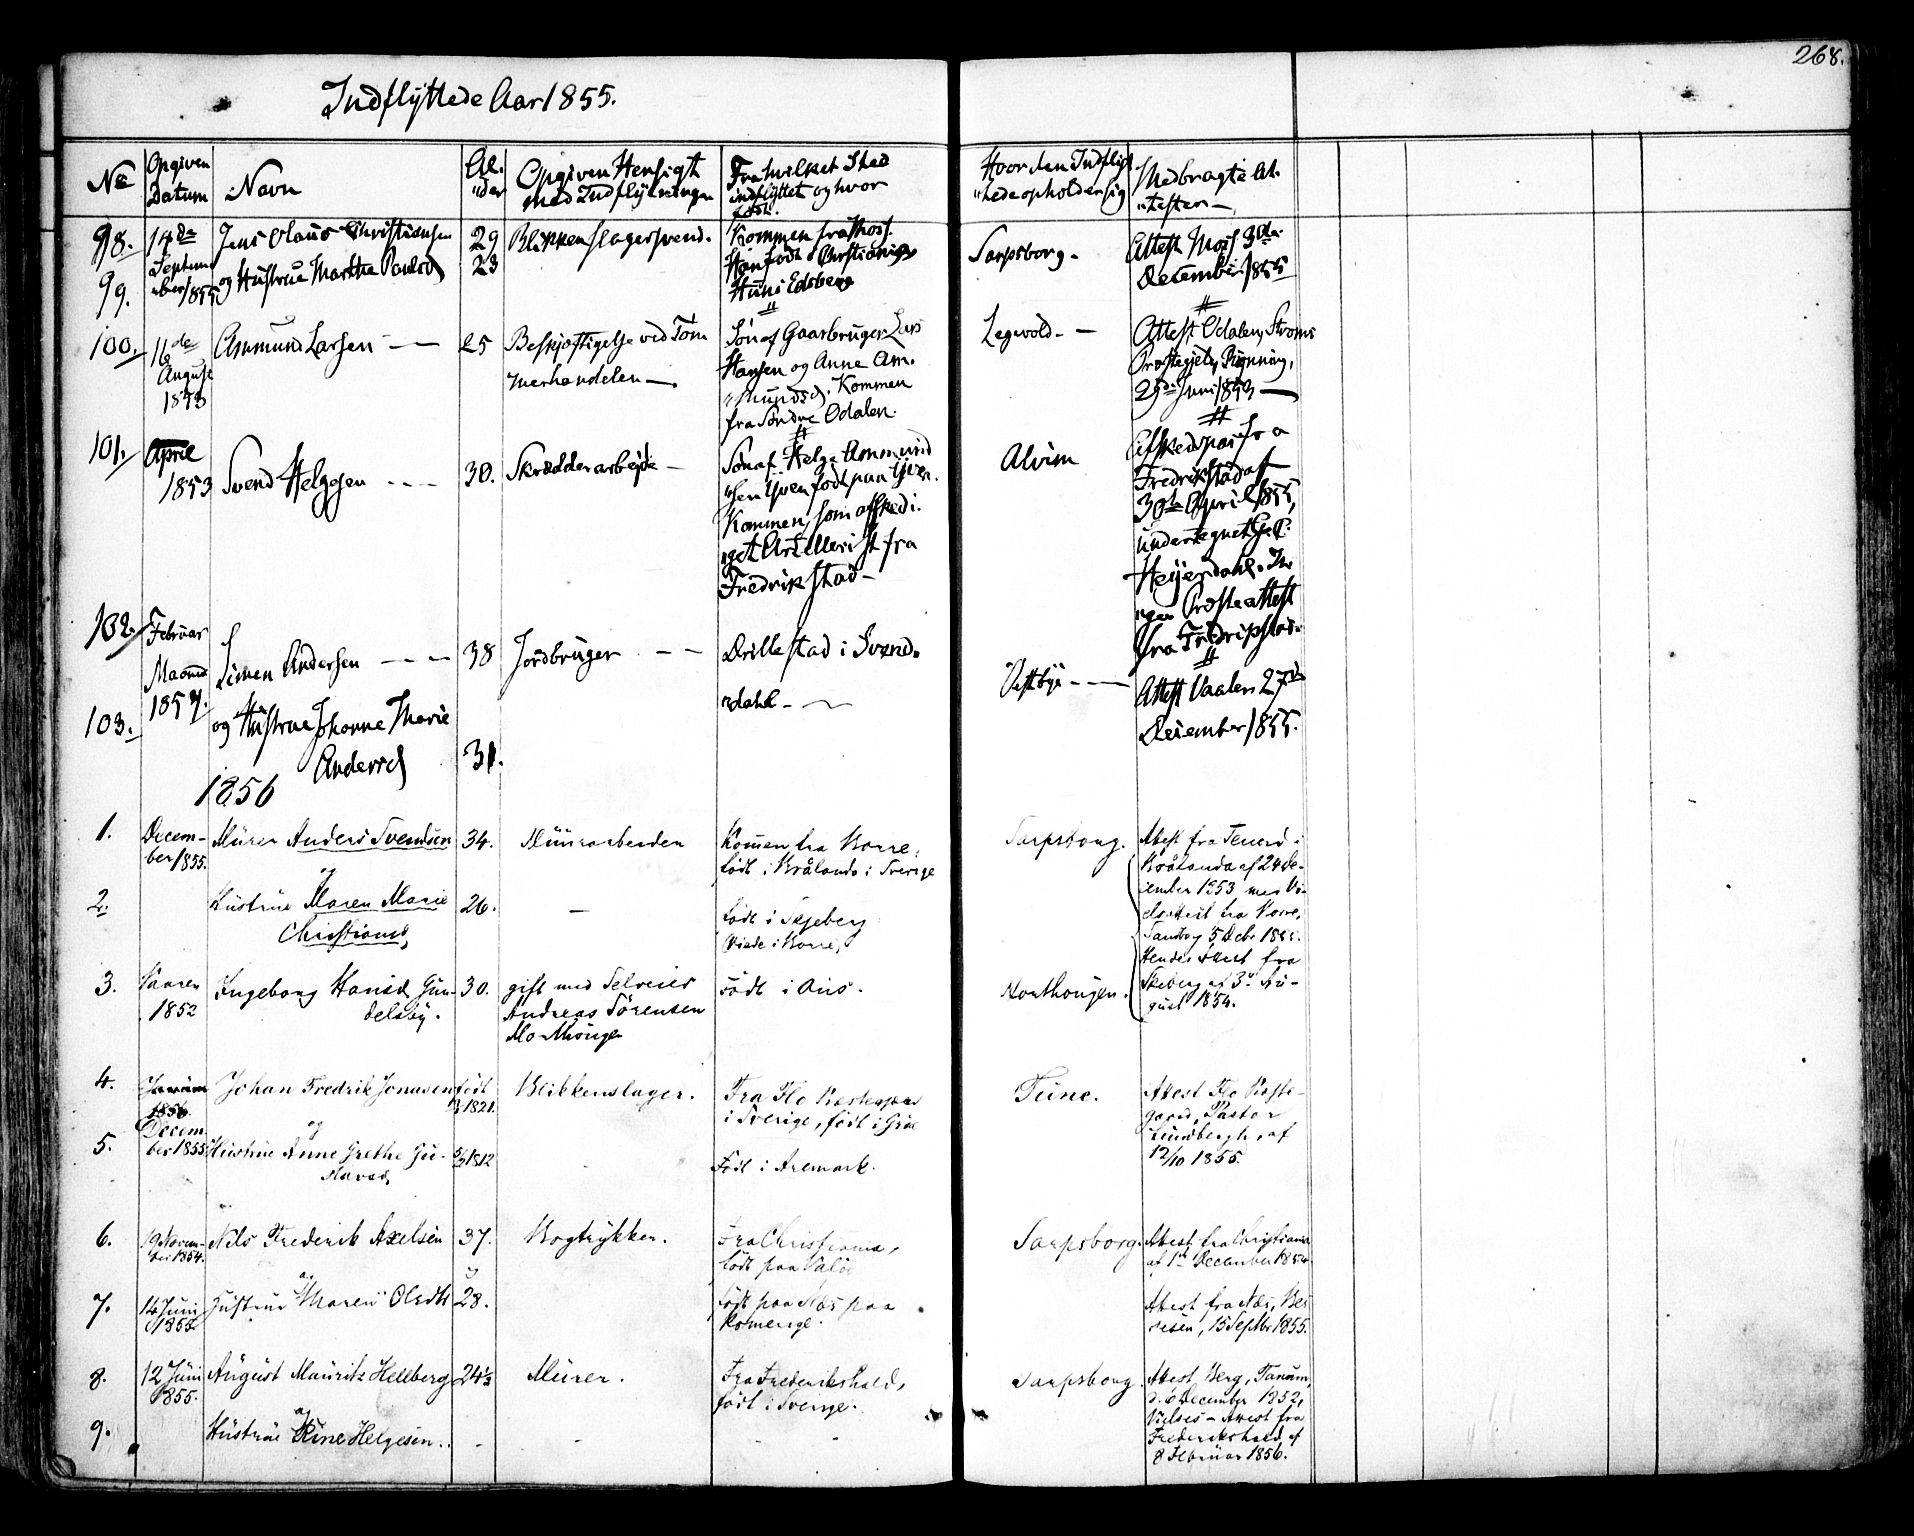 268.
Indflyttede Aar 1855.
No Opgiven Datum Navn Al-der Opgiven Hensigt med Indflytningen Fra hvilket Sted indflyttet og hvor født. Hvor den Indflyt-tede opholder sig Medbragte At-tester
98. 14de September 1855 Jens Olaus Christiansen 29 Blikkenslagersvend. Kommen fra Moss. Han født i Christiania Sarpsborg. Attest Moss 3die December 1855
99. og Hustrue Marthe Paulsd 23 Hun i Edsberg
100. 16de August 1853 Ammund Larsen 25 Beskjæftigelse ved Tømmerhandelen Søn af Gaardbruger Lars Hansen og Anne Am-mundsd. Kommen fra Søndre Odalen. Attest Odalen, Strøms Præstegjeld,
29de Juni 1853
101. April 1853 Svend Helgesen 30. Skrædderarbejde Søn af Helge Ammund-sen født paa
Kommen som afskedi-get Artillerist fra Fredrikstad Alvim Afskedspas fra Fredrikstad af 30te April 1855, undertegnet
Heyerdahl. In-gen Præsteattest fra Fredrikstad.
102. Februar Maaned 1854. Simen Andersen 38 Jordbruger Drillestad i Svend-dahl Vestbye Attest Vaaler 27de December 1855.
103. og Hustrue Johanne Marie Andersd 31.
1856
1. Decem-ber 1855. Murer Anders Svendsen 34. Muurarbeiden Kommen fra Borre, født i Bråland i Sverige Sarpsborg. Attest fra
24 De-cember 1853 med Vi-elsattest fra Borre, 5 Decbr 1855.
og
2. Hustrue Maren Marie Christiansd, 26. – født i Skjeberg Viede i Borre, Hendes Attest fra Skeberg af 3die Au-gust 1854.
3. 1852 Ingeborg Hansd Gun-delsby. 30. gift med Selveier Andreas Sörensen Født i Ous.
4. Januar 1856. December 1855 Johan Fredrik Jonasen født 1821. Blikkenslager. Fra Flo
i Sverige, født i Tune. Attest Flo Præste-gaard, Pastor Lundbergh, af 12/10 1855.
og
5. Hustrue Anne Grethe Gu-stavsd, 1812 Født i Aremark.
6. 19 Novem-ber 1854. Nils Frederik Axelsen 37. Bogtrykker. Fra Christiania, født paa Sarpsborg. Attest fra Christiania af 1ste December 1854
og
7. 14 Juni 1855 Hustrue Maren Olsdtr 28. født paa Næs paa Romerige. Attest fra Næs, 15 Septbr 1855.
8. 12 Juni 1855. August Mauritz Hellberg 24½ Murer. Fra Frederikshald, født i Sverige. Sarpsborg. Attest Berg, Tanum, d. 6 December 1852, Vielses-Attest fra Frederikshald af 8 Februar 1856.
og
9. Hustrue Helgesen.. - - -